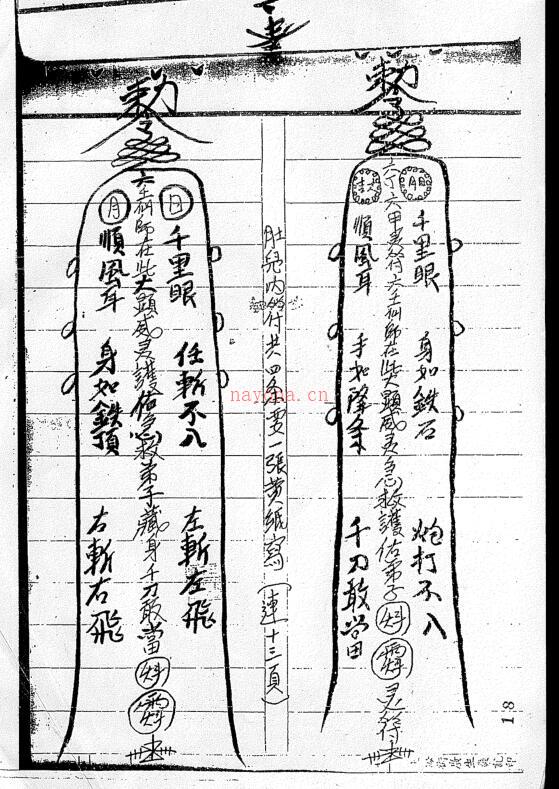 敕令
六丁六甲灵符六壬仙師在此大顕威灵急救護佑弟子
灵符
千里眼
身如鉄石
炮打不入
順風耳
千刀敢当
肚兜内符共四条要一張黄紙寫(連十三頁)
敕令
日
月
六壬仙師在此大顕威灵護佑急救弟子藏身千刀敢當
千里眼
任斬不入
左斬左飛
順風耳
身如鉄頂
右斬右飛
18